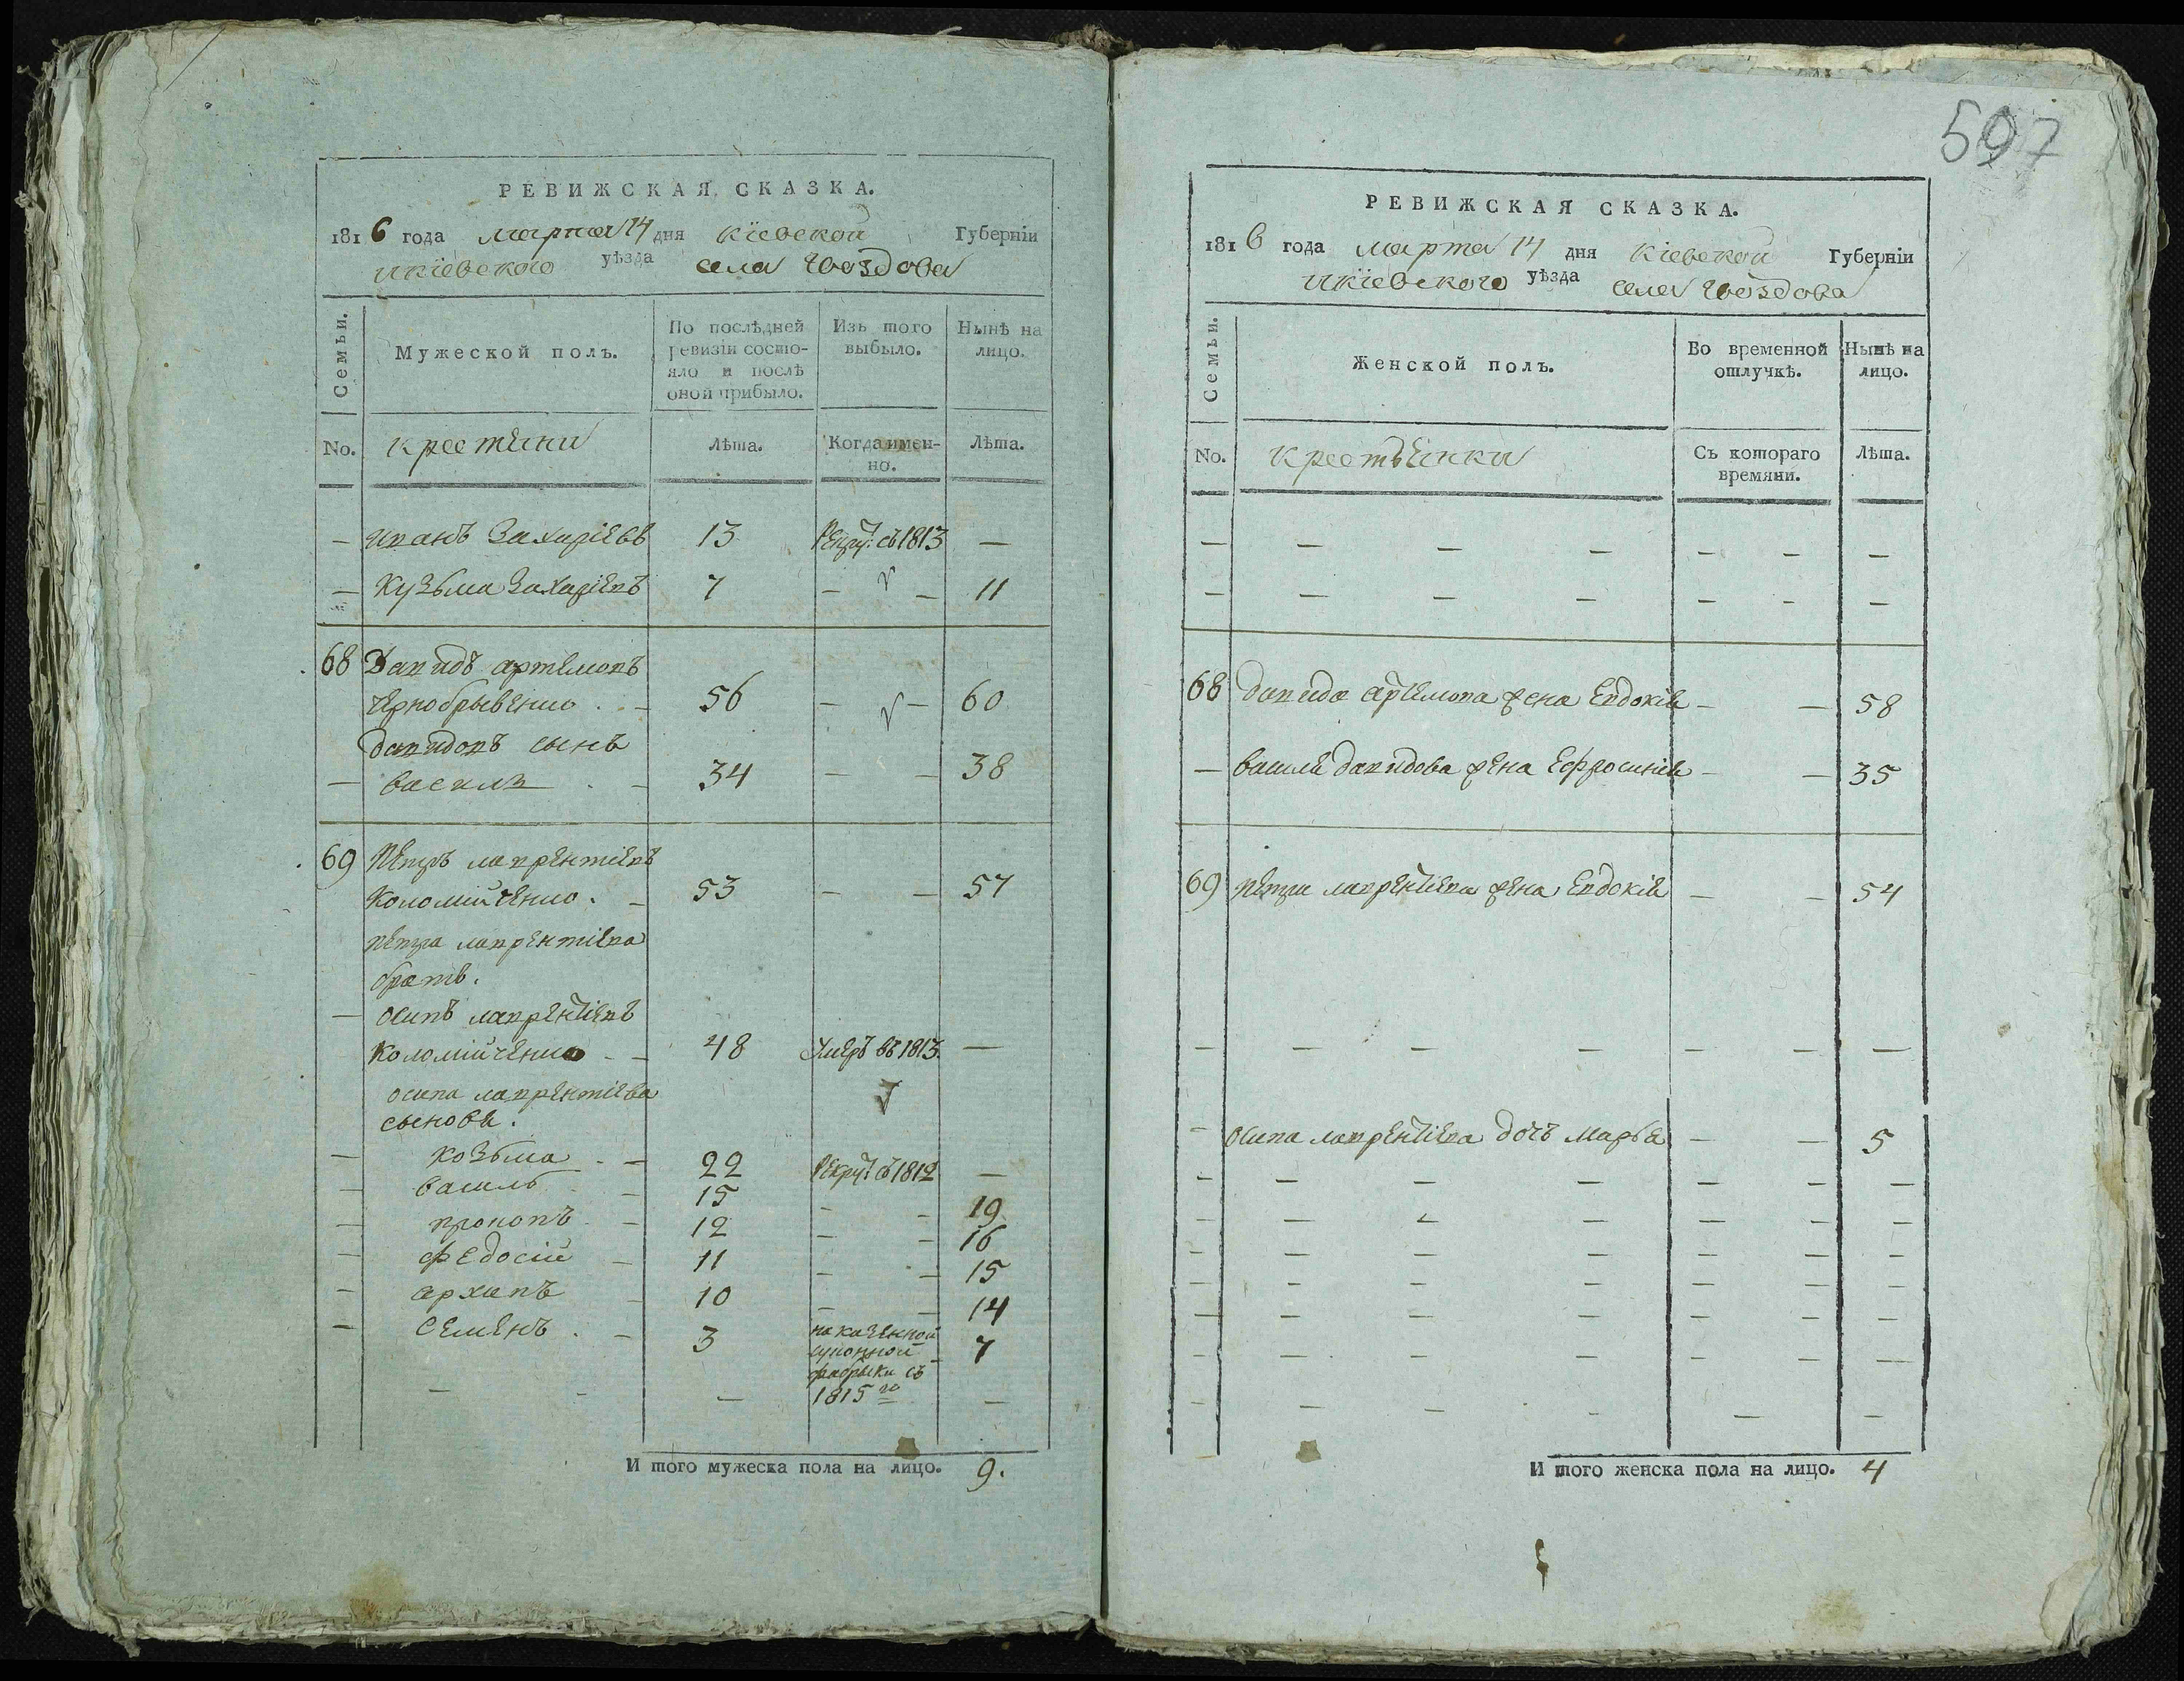 597
РЕВИЖСКАЯ СКАЗКА.
1816 года марта 14 дня Кіевской Губерніи
и Кіевского уѣзда села Гвоздова
Семьи.
Мужеской полъ.
По послѣдней
ревизіи состо-
яло и послѣ
оной прибыло.
Изъ того
выбыло.
Нынѣ на
лицо.
No.
крестяни
Лѣта.
Когда имен-
но.
Лѣта.
— иванъ Захаріевъ 13 Рекрут: съ 1813 —
— Кузьма Захаріевъ 7 — — 11
68 Давидъ артемовъ
чернобрывенко . — 56 — — 60
давидовъ сынъ
— василь . — 34 — — 38
69 Петръ лаврентіевъ
Коломийченко . — 53 — — 57
петра лаврентіева
братъ.
— осипъ лаврентіевъ
Коломийченко . — 48 Умеръ въ 1813 —
осипа лаврентіева
сынове.
— козьма . — 22 Рекрут съ 1812 —
— василь . — 15 — — 19
— прокопъ . — 12 — — 16
— федосій — 11 — — 15
— архипъ — 10 — — 14
— Семенъ . — 3 на казенной 7
суконной
фабрыки съ
1815го
— - — —
И того мужеска пола на лицо. 9.
РЕВИЖСКАЯ СКАЗКА.
1816 года марта 14 дня Кіевской Губерніи
и Кіевского уѣзда села Гвоздова
Семьи.
Женской полъ.
Во временной
отлучкѣ.
Нынѣ на
лицо.
No.
крестьянки
Съ котораго
времяни.
Лѣта.
— — — — — — —
— — — — — — —
68 давида артемова жена Евдокія — — 58
— василя давидова жена Ефросинія — — 35
69 петра лаврентіева жена Евдокія — — 54
— — — — — — —
- осипа лаврентіева дочь марья — — 5
— — — — — — —
— — — — — — —
— — — — — — —
— — — — — — —
— — — — — — —
— — — — — — —
— — — — — —
И того женска пола на лицо. 4